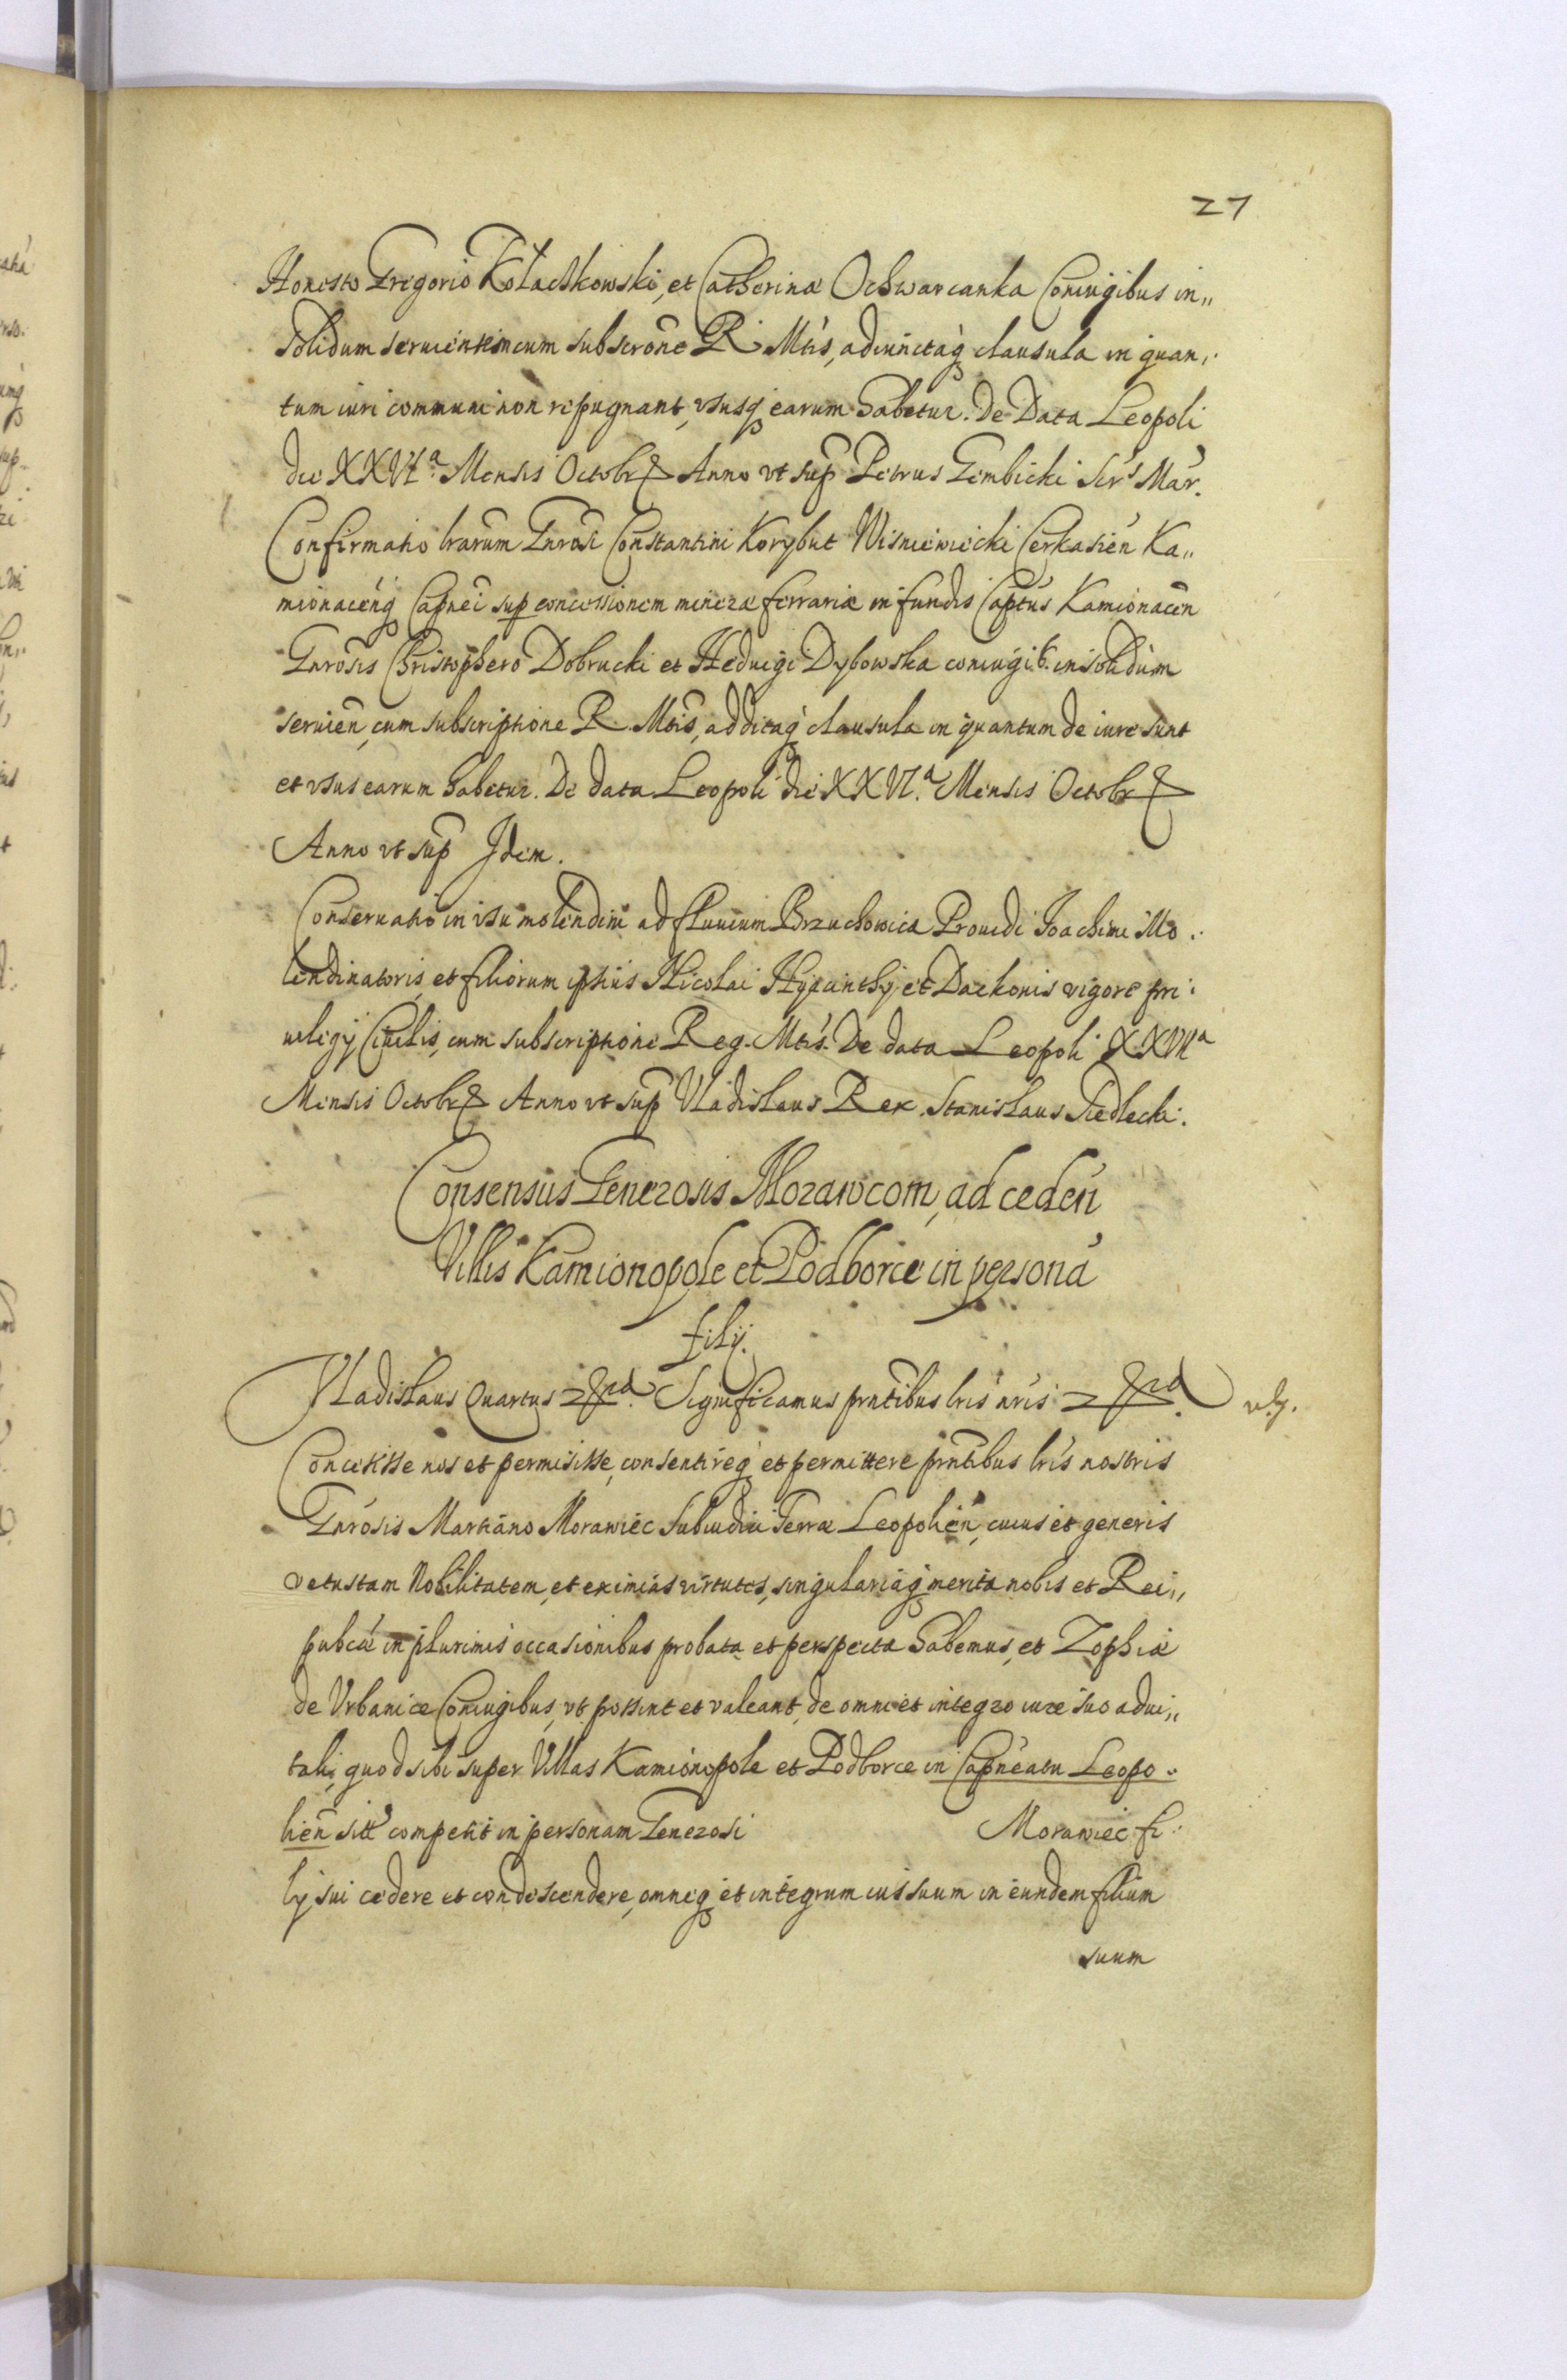 27
Honesto Gregorio Kołaczkowski, et Catherinæ Ochwarcanka Coniugibus in„
solidum seruientem cum subscrōne R. Mtis, adiunctaq clausula in quan„
tum iuri communi non repugnant, vsusq earum habetur. De Data Leopoli
die XXVIª Mensis Octobr Anno vt sup Petrus Gembicki Scrs Mar.
Confirmatio lrarum Gnrosi Constantini Korybut Wisniewiecki Cerkasień Ka„
mionaceńq Capnei sup concessionem mineræ ferrariæ in fundis Captus Kamionacen
Gnrosis Christophero Dobrucki et Heduigi Dybowska coniugib. insolidum
seruien, cum subscriptione R. Mtis, additaq clausula in quantum de iure sunt
et vsus earum habetur. De data Leopoli die XXVI.ª Mensis Octobr
Anno vt sup Idem.
Conseruatio in vsu molendini ad fluuium Brzuchowica Prouidi Joachimi Mo„
lendinatoris, et filiorum ipsius Nicolai Hyacinthy et Dackonis vigore pri„
uilegij Ciuilis, cum subscriptione Reg. Mtis. De data Leopoli XXVIª
Mensis Octobr Anno vt sup Vladislaus Rex. Stanislaus Siedlecki.
Consensus Generosis Morawcom, ad cedeń
Villis Kamionopole et Podborce in persona
filij.
Vladislaus Quartus Significamus pntibus lris nris
v.g.
Concessisse nos et permisisse, consentireq et permittere pntibus lris nostris
Gnrosis Martiano Morawiec Subiudici Terræ Leopolień, cuius et generis
vetustam Nobilitatem, et eximias virtutes, singulariaq merita nobis et Rei„
pubcæ in plurimis occasionibus probata et perspecta habemus, et Zophiæ
de Vrbanice Coniugibus, vt possint et valeant, de omni et integro iure suo adui„
tali, quod sibi super Villas Kamionopole et Podborce in Capneatu Leopo„
lien sitt competit in personam Generosi Morawiec fi„
lij sui cedere et condescendere, omneq et integrum ius suum in eundem filium
suum